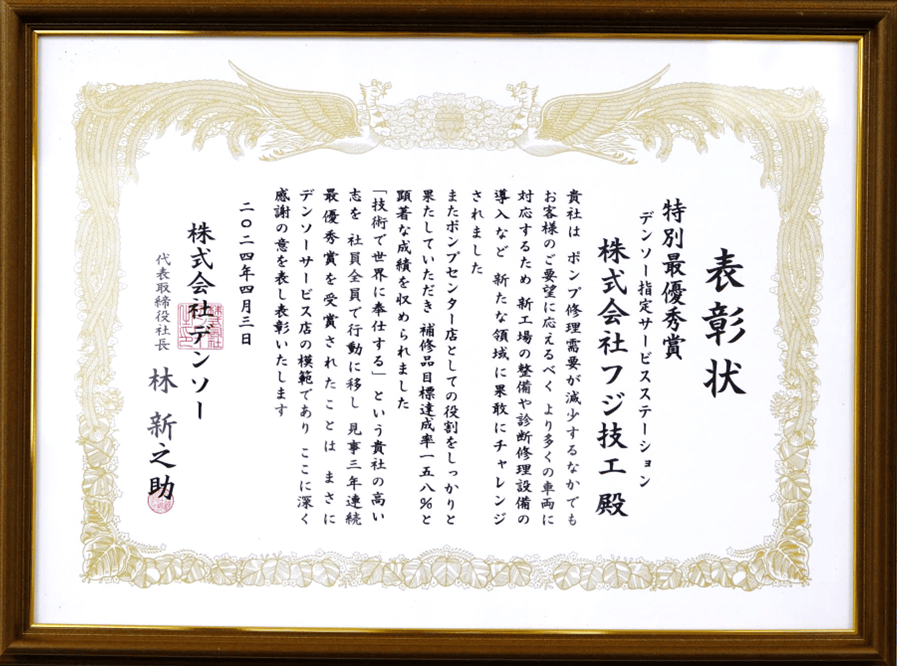 表彰状
特別最優秀賞
デンソー指定サービスステーション
株式会社フジ技工 殿
貴社は ポンプ修理需要が減少するなかでも
お客様のご要望に応えるべく より多くの車両に
対応するため 新工場の整備や診断修理設備の
導入など 新たな領域に果敢にチャレンジ
されました
またポンプセンター店としての役割をしっかりと
果たしていただき 補修品目標達成率一五八%と
顕著な成績を収められました
「技術で世界に奉仕する」という貴社の高い
志を 社員全員で行動に移し 見事三年連続
最優秀賞を受賞されたことは まさに
デンソーサービス店の模範であり ここに深く
感謝の意を表し表彰いたします
二〇二四年四月三日
株式会社デンソー
代表取締役社長 林 新之助